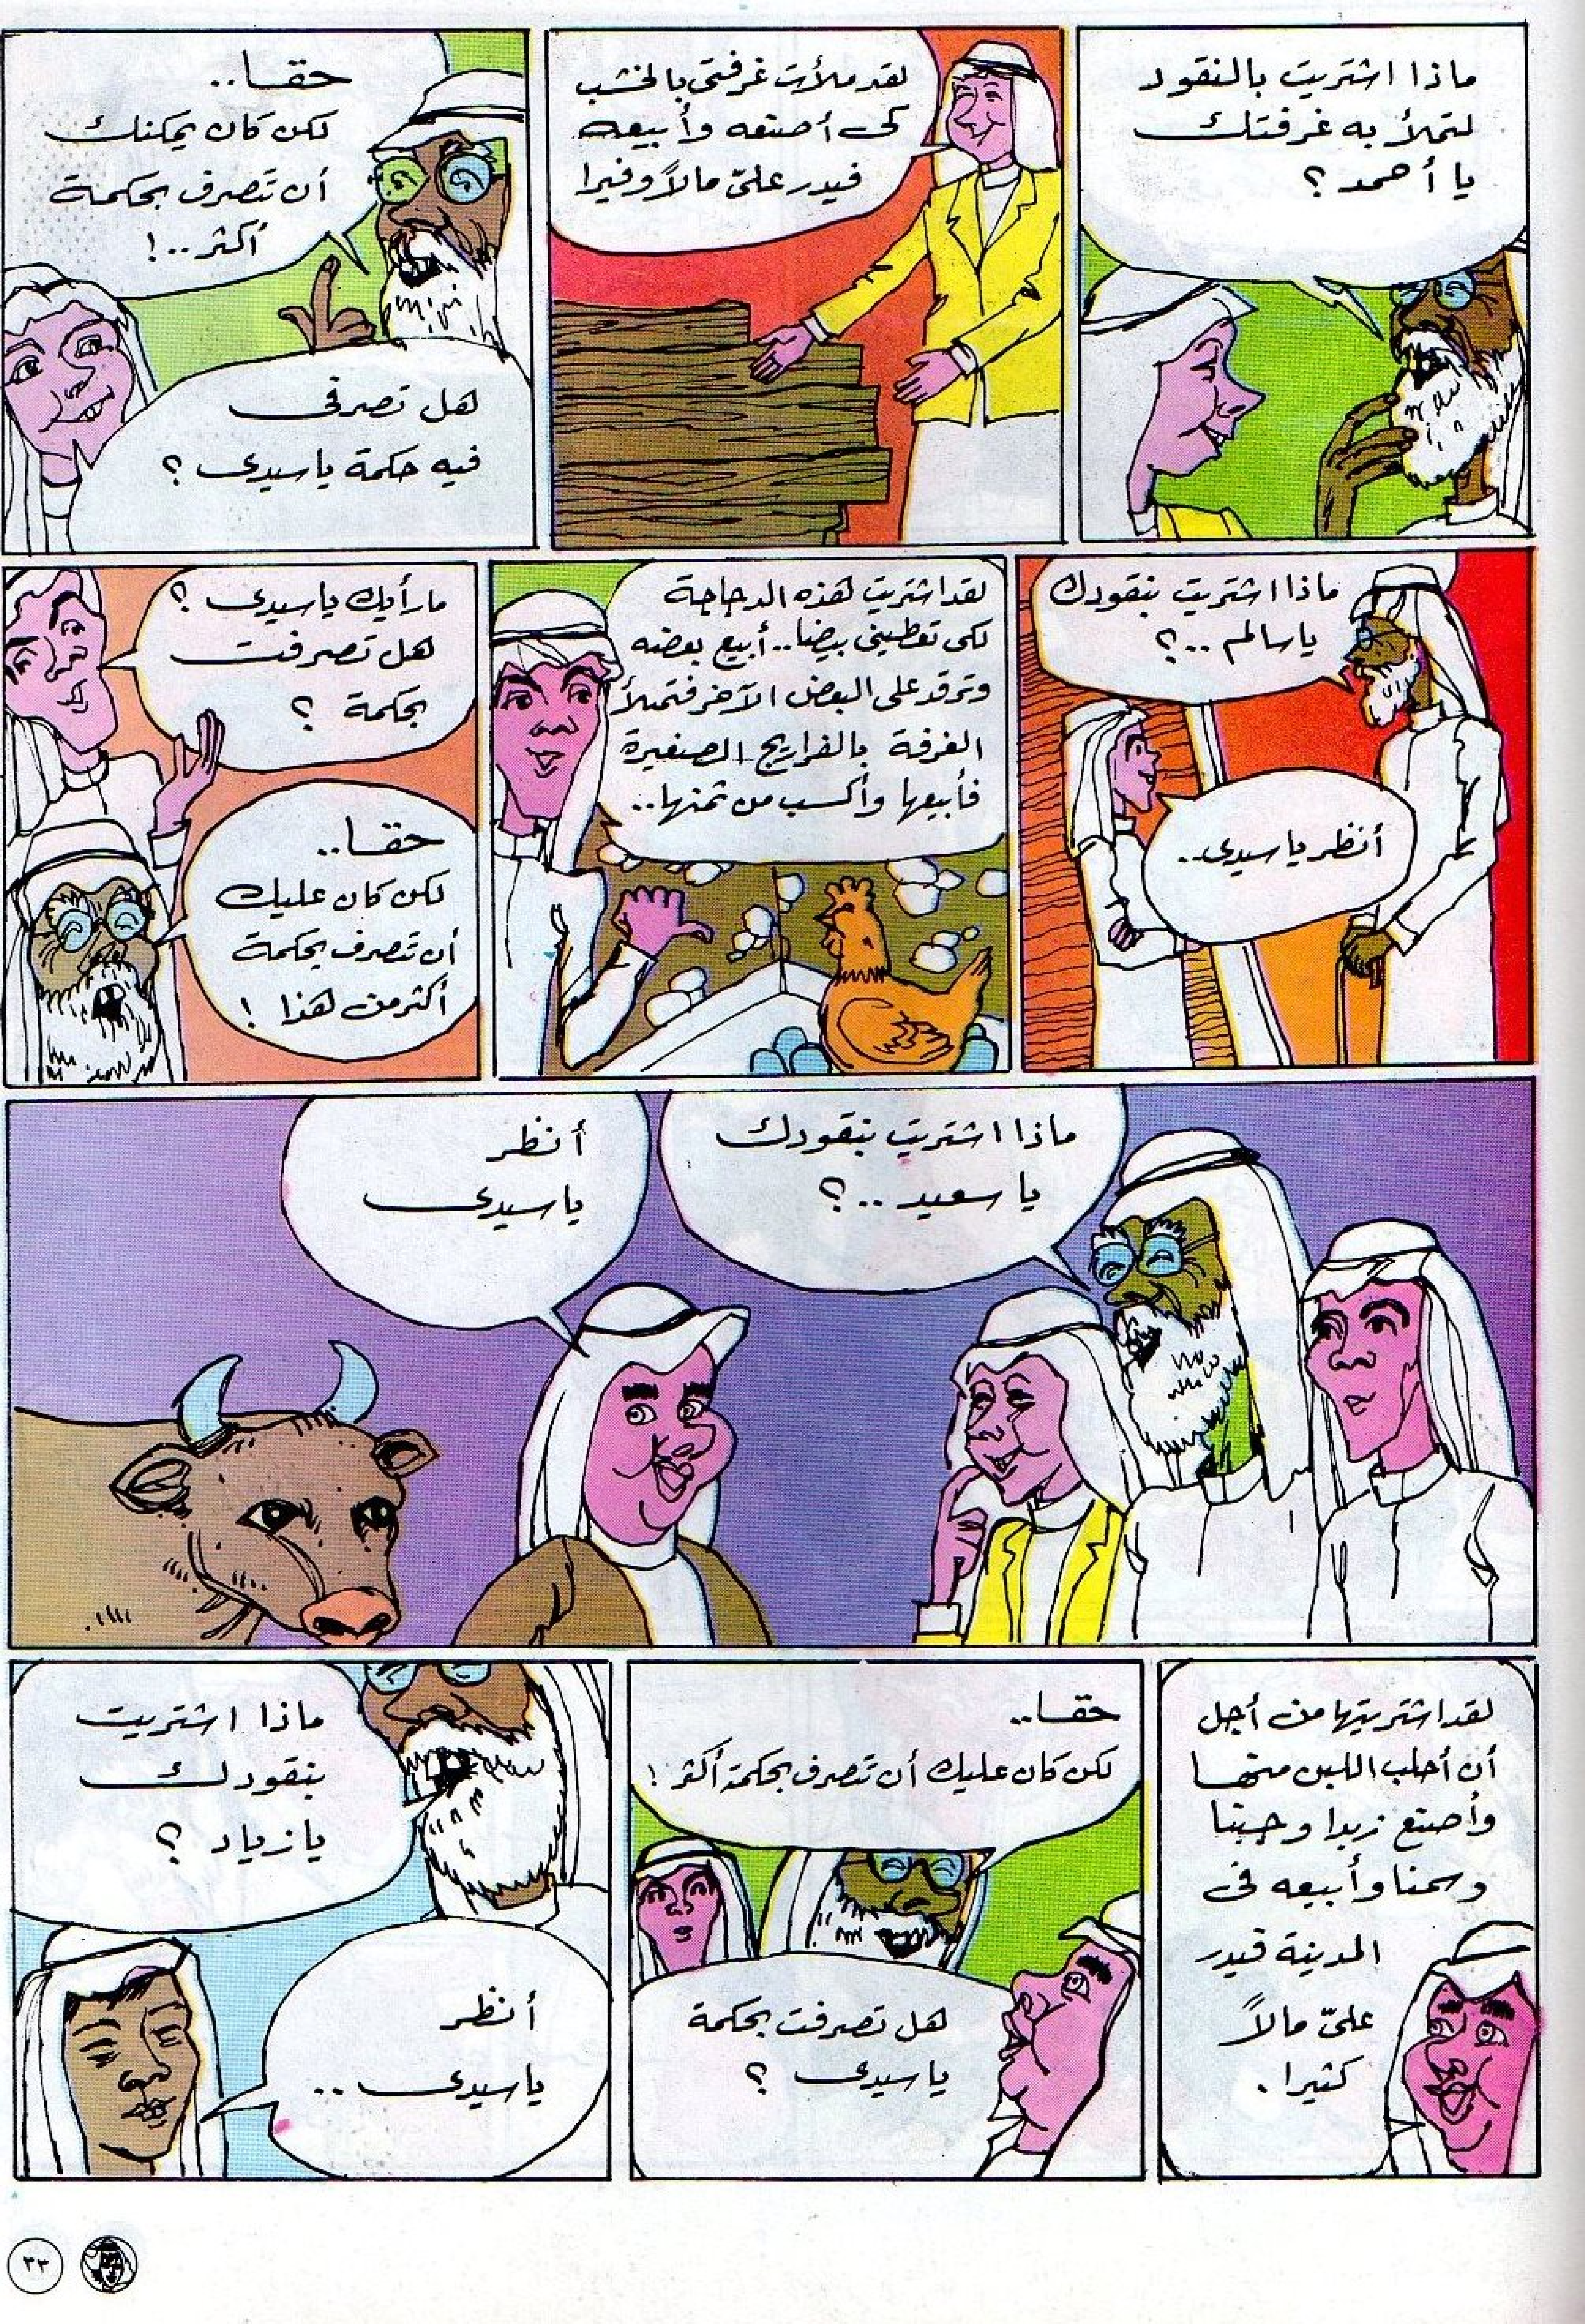 ماذا اشتريت بالنقود
لتملأ به غرفتك
يا أحمد ؟
لقد ملأت غرفتى بالخشب
كى أصنعه وأبيعه
فيدر علىّ مالاً وفيرا
حقا..
لكن كان يمكنك
أن تتصرف بحكمة
أكثر..!
هل تصرفى
فيه حكمة ياسيدى ؟
ماذا اشتريت بنقودك
ياسالم ..؟
أنظر ياسيدى..
لقد اشتريت هذه الدجاجة
لكى تعطينى بيضا.. أبيع بعضه
وترقد على البعض الآخر فتملأ
الغرفة بالفراريج الصغيرة
فأبيعها وأكسب من ثمنها..
مارأيك ياسيدى ؟
هل تصرفت
بحكمة ؟
حقا..
لكن كان عليك
أن تتصرف بحكمة
أكثر من هذا !
ماذا اشتريت بنقودك
يا سعيد ..؟
أنظر
ياسيدى
لقد اشتريتها من أجل
أن أحلب اللبن منها
وأصنع زبدا وجبنا
وسمنا وأبيعه فى
المدينة فيدر
علىّ مالاً
كثيرا .
حقا..
لكن كان عليك أن تتصرف بحكمة أكثر !
هل تصرفت بحكمة
ياسيدى ؟
ماذا اشتريت
بنقودك
يا زياد ؟
أنظر
ياسيدى ..
٣٣